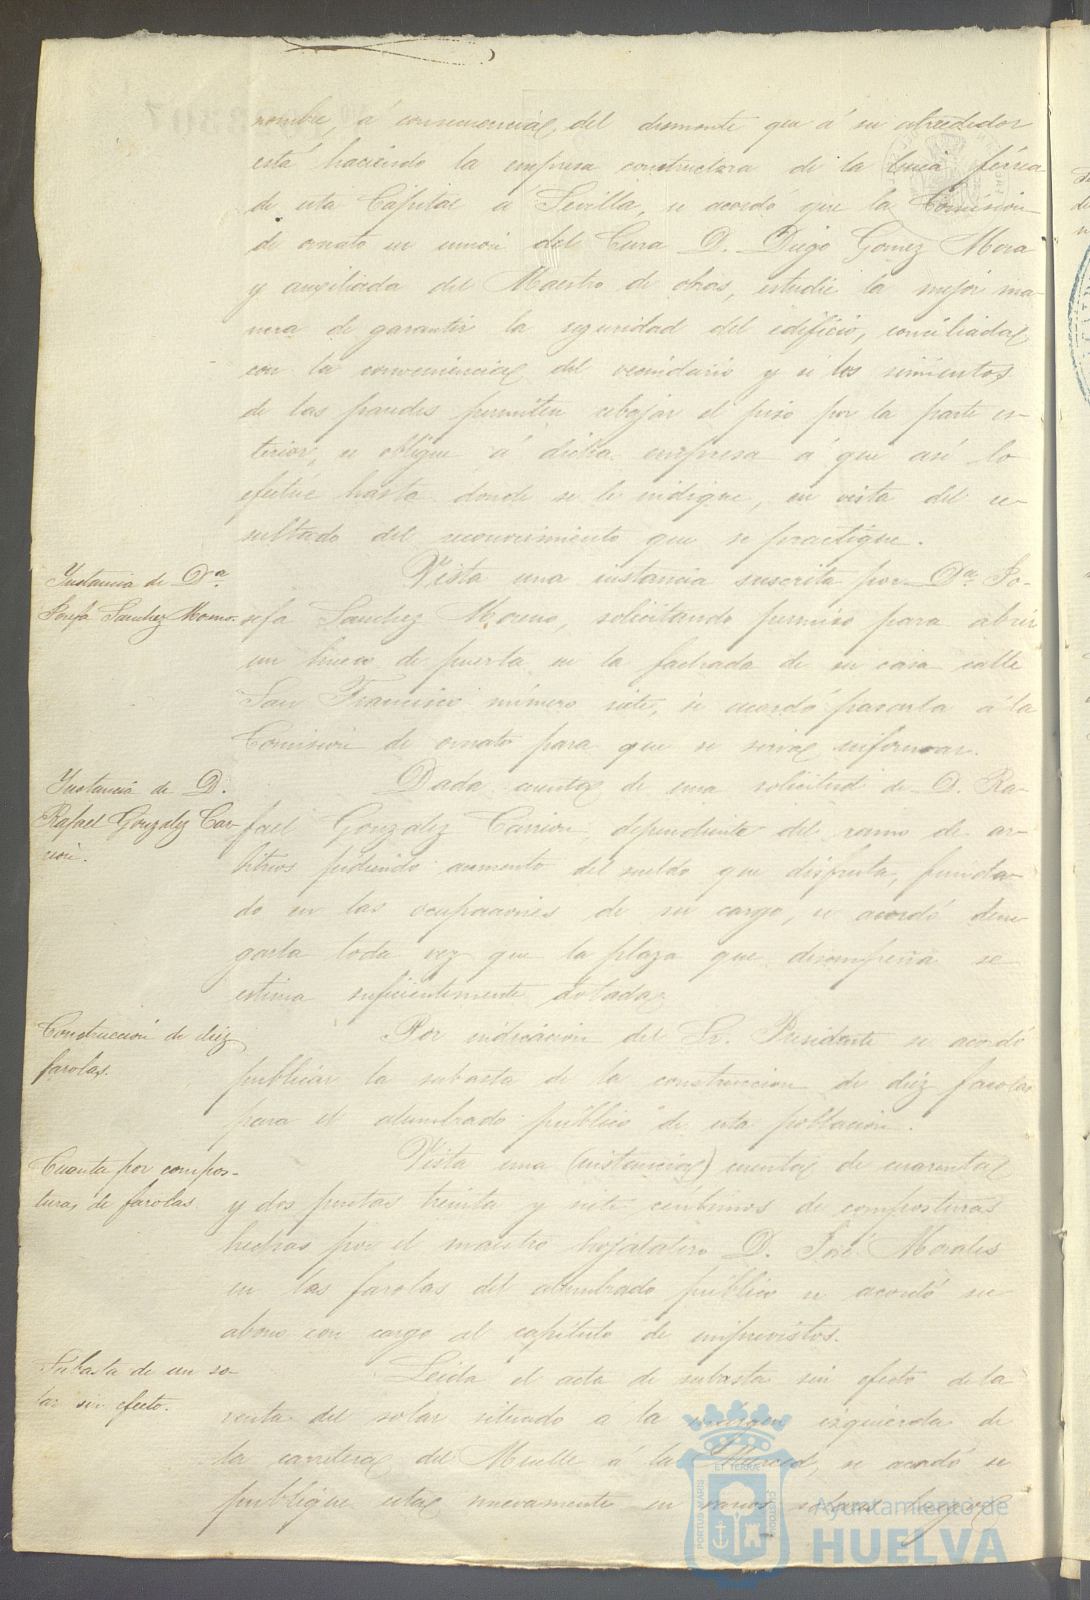 nombre, á consecuencia del desmonte que á su alrededor
está haciendo la empresa constructora de la linea férrea
de esta Capital á Sevilla, se acordó que la Comision
de ornato en union del Cura D. Diego Gomez Mora
y auxiliada del Maestro de obras, estudie la mejor ma-
nera de garantir la seguridad del edificio, conciliada
con la conveniencia del vecindario y si los cimientos
de las paredes permiten rebajar el piso por la parte es-
terior, se obligue á dicha empresa á que así lo
efectúe hasta donde se le indique, en vista del re-
sultado del reconocimiento que se practique.
Instancia de Dª
Josefa Sanchez Moreno.
Vista una instancia suscrita por Dª Jo-
sefa Sanchez Moreno, solicitando permiso para abrir
un hueco de puerta en la fachada de su casa calle
San Francisco número siete, se acordó pasarla á la
Comision de ornato para que se sirva informar.
Instancia de D.
Rafael Gonzalez Car-
rion.
Dada cuenta de una solicitud de D. Ra-
fael Gonzalez Carrion dependiente del ramo de ar-
bitrios pidiendo aumento del sueldo que disfruta, funda-
do en las ocupaciones de su cargo, se acordó dene-
garla toda vez que la plaza que desempeña se
estima suficientemente dotada.
Construccion de diez
farolas.
Por indicacion del Sr. Presidente se acordó
publicar la subasta de la construccion de diez farolas
para el alumbrado público de esta poblacion.
Cuenta por compos-
turas de farolas.
Vista una (instancia) cuenta de cuarenta
y dos pesetas treinta y siete céntimos de composturas
hechas por el maestro hojalatero D. José Morales
en las farolas del alumbrado público se acordó su
abono con cargo al capítulo de imprevistos.
Subasta de un so-
lar sin efecto.
Leida el acta de subasta sin efecto de la
venta del solar situado á la márgen izquierda de
la carretera del Muelle á la Merced, se acordó se
publique esta nuevamente en
PORTUS MARIS
ET TERRÆ
CUSTODIA
Ayuntamiento de
HUELVA